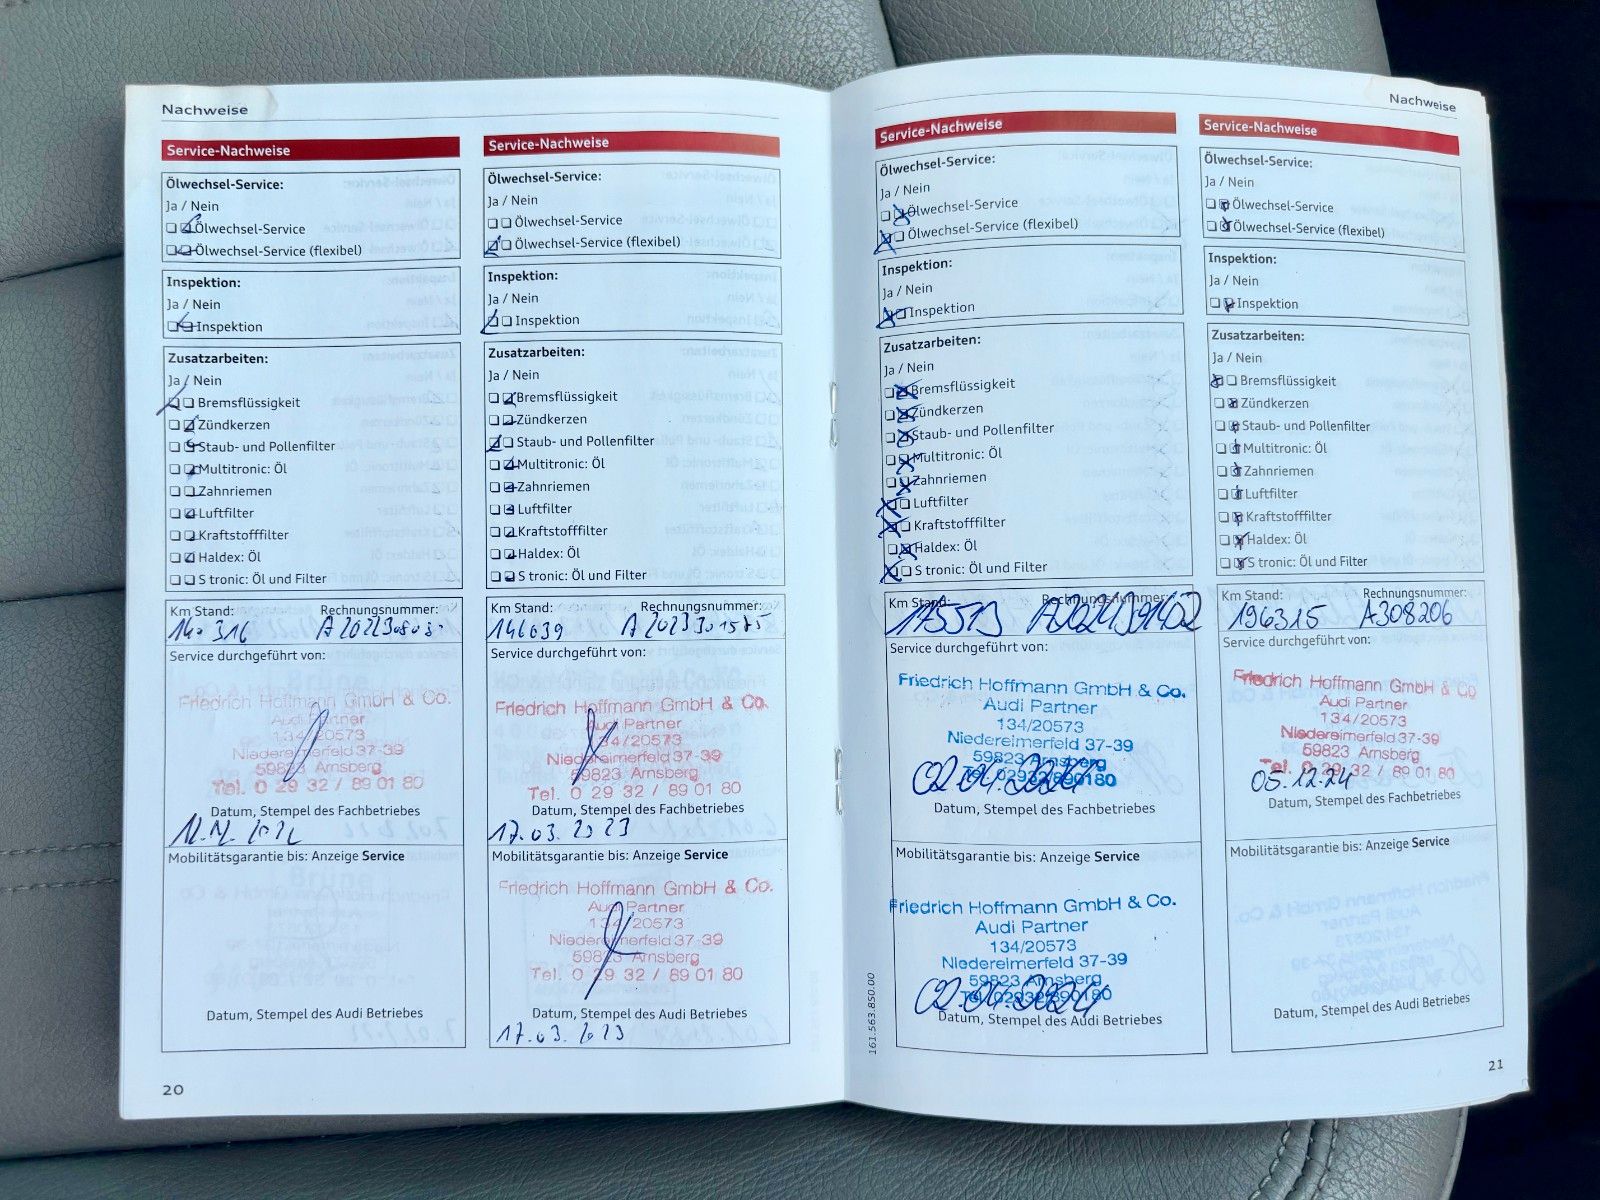 Nachweise
Service-Nachweise
Ölwechsel-Service:
Ja / Nein
Ölwechsel-Service
Ölwechsel-Service (flexibel)
Inspektion:
Ja / Nein
Inspektion
Zusatzarbeiten:
Ja / Nein
Bremsflüssigkeit
Zündkerzen
Staub- und Pollenfilter
Multitronic: Öl
Zahnriemen
Luftfilter
Kraftstofffilter
Haldex: Öl
S tronic: Öl und Filter
Km Stand: Rechnungsnummer:
140 316
Service durchgeführt von:
Friedrich Hoffmann GmbH & Co.
Audi Partner
134/20573
Niedereimerfeld 37-39
59823 Arnsberg
Tel. 0 29 32 / 89 01 80
Datum, Stempel des Fachbetriebes
Mobilitätsgarantie bis: Anzeige Service
Datum, Stempel des Audi Betriebes
20
Service-Nachweise
Ölwechsel-Service:
Ja / Nein
Ölwechsel-Service
Ölwechsel-Service (flexibel)
Inspektion:
Ja / Nein
Inspektion
Zusatzarbeiten:
Ja / Nein
Bremsflüssigkeit
Zündkerzen
Staub- und Pollenfilter
Multitronic: Öl
Zahnriemen
Luftfilter
Kraftstofffilter
Haldex: Öl
S tronic: Öl und Filter
Km Stand: Rechnungsnummer:
146039 A2023301575
Service durchgeführt von:
Friedrich Hoffmann GmbH & Co.
Audi Partner
134/20573
Niedereimerfeld 37-39
59823 Arnsberg
Tel. 0 29 32 / 89 01 80
Datum, Stempel des Fachbetriebes
17.03.2023
Mobilitätsgarantie bis: Anzeige Service
Friedrich Hoffmann GmbH & Co.
Audi Partner
134/20573
Niedereimerfeld 37-39
59823 Arnsberg
Tel. 0 29 32 / 89 01 80
Datum, Stempel des Audi Betriebes
17.03.2023
Nachweise
Service-Nachweise
Ölwechsel-Service:
Ja / Nein
Ölwechsel-Service
Ölwechsel-Service (flexibel)
Inspektion:
Ja / Nein
Inspektion
Zusatzarbeiten:
Ja / Nein
Bremsflüssigkeit
Zündkerzen
Staub- und Pollenfilter
Multitronic: Öl
Zahnriemen
Luftfilter
Kraftstofffilter
Haldex: Öl
S tronic: Öl und Filter
Km Stand: Rechnungsnummer:
175513
Service durchgeführt von:
Friedrich Hoffmann GmbH & Co.
Audi Partner
134/20573
Niedereimerfeld 37-39
59823 Arnsberg
Tel. 02932/890180
02.04.2024
Datum, Stempel des Fachbetriebes
Mobilitätsgarantie bis: Anzeige Service
Friedrich Hoffmann GmbH & Co.
Audi Partner
134/20573
Niedereimerfeld 37-39
59823 Arnsberg
Tel. 02932/890180
02.04.2024
Datum, Stempel des Audi Betriebes
161.563.850.00
Service-Nachweise
Ölwechsel-Service:
Ja / Nein
Ölwechsel-Service
Ölwechsel-Service (flexibel)
Inspektion:
Ja / Nein
Inspektion
Zusatzarbeiten:
Ja / Nein
Bremsflüssigkeit
Zündkerzen
Staub- und Pollenfilter
Multitronic: Öl
Zahnriemen
Luftfilter
Kraftstofffilter
Haldex: Öl
S tronic: Öl und Filter
Km Stand: Rechnungsnummer:
196315 A308206
Service durchgeführt von:
Friedrich Hoffmann GmbH & Co
Audi Partner
134/20573
Niedereimerfeld 37-39
59823 Arnsberg
Tel. 0 29 32 / 89 01 80
05.12.24
Datum, Stempel des Fachbetriebes
Mobilitätsgarantie bis: Anzeige Service
Datum, Stempel des Audi Betriebes
21